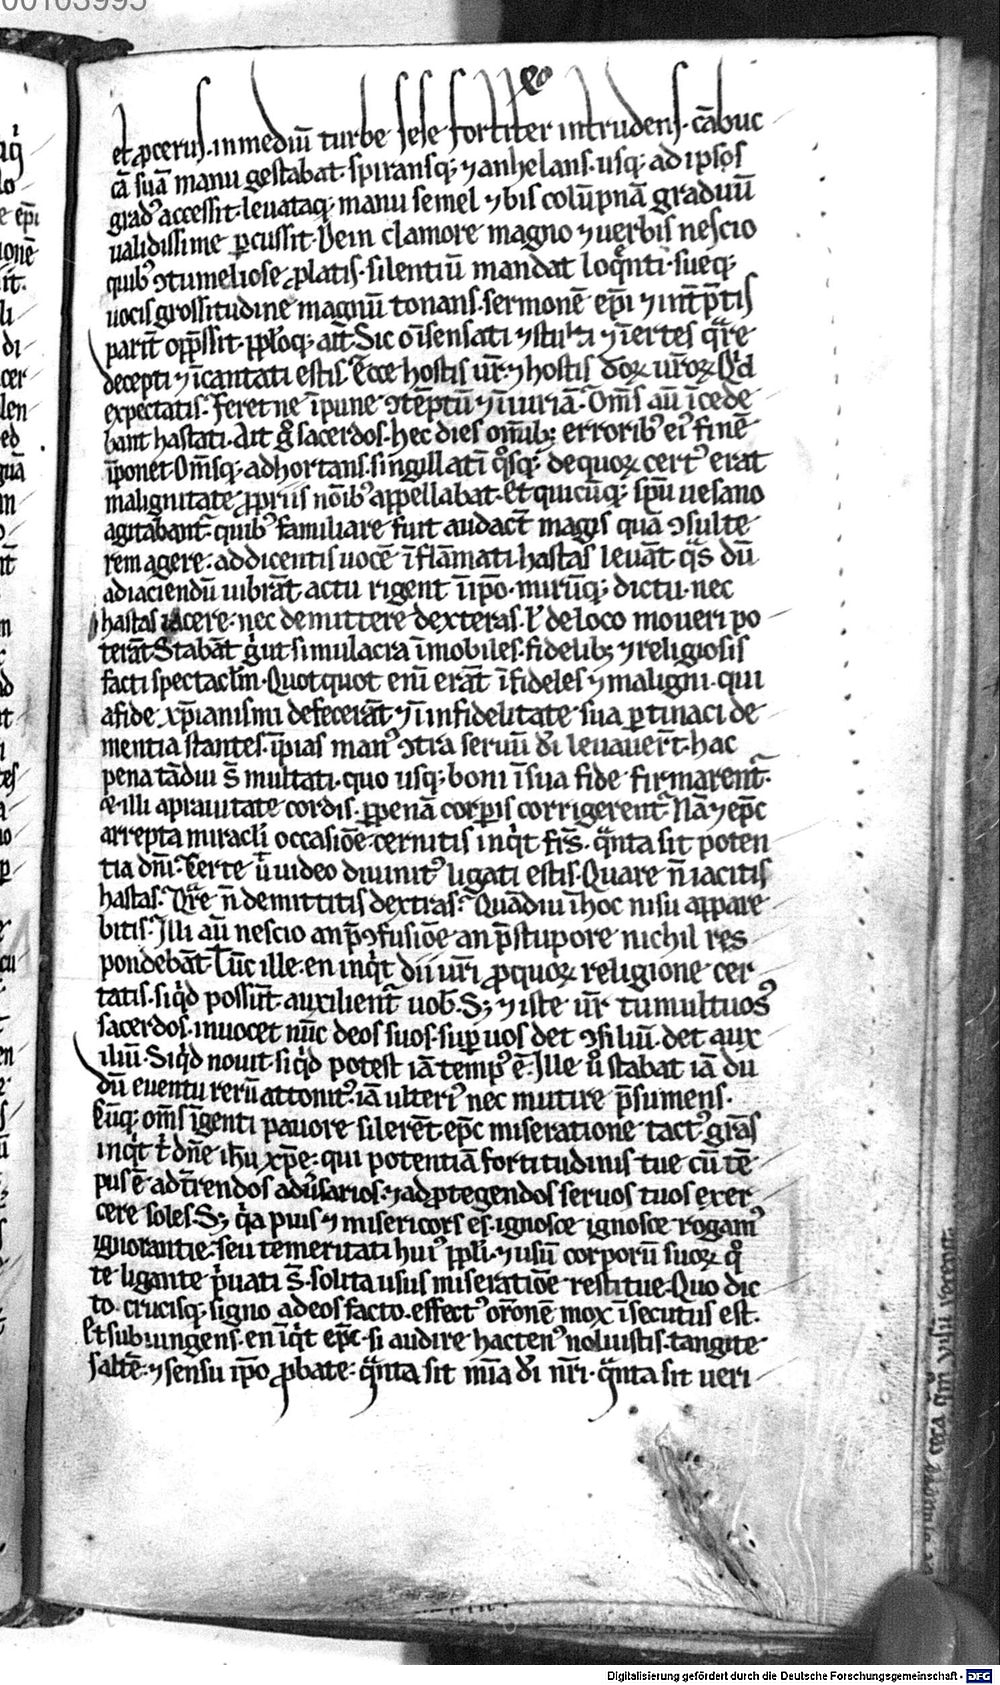 00103995
et ꝓcerus. in mediū turbe sese fortiter intrudens. cābuc
cā suā manu gestabat. spiransq; ⁊ anhelans. usq; ad ipsos
gradꝰ accessit. leuataq; manu semel ⁊ bis colūpnā graduū
ualidissime ꝑcussit. Dein clamore magno ⁊ uerbis nescio
quibꝰ ꝯtumeliose ꝓlatis. silentiū mandat loqͣnti. sueq;
uocis grossitudine magnū tonans. sermonē ep̄i ⁊ int̄p̄tis
parit̄ opp̄ssit. pplōq; ait. Sic o īsensati ⁊ stulti ⁊ īertes qͣre
decepti ⁊ īcantati estis. Ecce hostis ur̄. ⁊ hostis deoꝝ ur̄oꝝ. Qͥd
expectatis. Feret ne īpune ꝯtēptū ⁊ īiuriā. Om̄s aū īcede
bant hastati. Ait gͦ sacerdos. hec dies om̄ib; erroribꝰ eiꝰ finē
īponet. Om̄sq; adhortans. singillatī qͦsq; de quoꝝ certꝰ erat
malignitate ꝓpriis nōibꝰ appellabat. Et quicūq; sp̄u uesano
agitabant̄. quibꝰ familiare fuit audact̄ magis quā ꝯsulte
rem agere. ad dicentis uocē īflāmati. hastas leuāt. qͣs dū
ad iaciendū uibrāt actu rigent īipō. mirūq; dictu. nec
hastas iacere. nec demittere dexteras. ł de loco moueri po
terāt. Stabāt gͦ ut simulacra īmobiles. fidelib; ⁊ religiosis
facti spectaclm̄. Quotquot eni erāt īfideles ⁊ maligni. qui
a fide xp̄ianismi defecerāt ⁊ ī infidelitate sua ꝑtinaci de
mentia stantes. īpias manꝰ ꝯtra seruū dī leuauer̄t. hac
pena tādiu s̄ multati. quo usq; boni īsua fide firmarent̄.
⁊ illi a prauitate cordis. ꝑ penā corꝑis corrigerent̄. Nā ⁊ ep̄c
arrepta miraclī occasiōe. cernitis inqͥt fr̄s. qͣnta sit poten
tia dn̄i. Certe ut uideo diuinitꝰ ligati estis. Quare n̄ iacitis
hastas. Qͣre n̄ demittitis dextras. Quādiu ī hoc nisu appare
bitis. Illi aū nescio an p̄ ꝯfusiōe an p̄ stupore nichil res
pondebāt. Tūc ille. en inqͥt dii ur̄i ꝓ quoꝝ religione cer
tatis. siqͥd possūt auxilient̄ uob̄. S; ⁊ iste ur̄ tumultuosꝰ
sacerdos. inuocet nūc deos suos. suꝑ uos det ꝯsiliū. det aux
iliū. Siqͥd nouit. siqͥd potest iā tempꝰ ē. Ille uͦ stabat iā du
dū euentu rerū attonitꝰ. iā ulteriꝰ nec mutire p̄sumens.
Cūq; om̄s īgenti pauore silerēt. ep̄c miseratione tactꝰ. grās
inqͥt tͥ dn̄e ih̄u xp̄e. qui potentiā fortitudinis tue cū tē
pus ē. ad t̄rendos adūsarios. ⁊ ad ꝓtegendos seruos tuos exer
cere soles. S; qͥa pius ⁊ misericors es. ignosce ignosce rogamꝰ
ignorantie. seu temeritati huiꝰ ppl̄i. ⁊ usū corporū suoꝝ qͦ
te ligante p̄uati s̄. solita usus miseratiōe restitue. Quo dic
to. crucisq; signo ad eos facto. effectꝰ or̄onē mox īsecutus est.
Et subiungens. en īqͥt ep̄c. si audire hactenꝰ noluistis. tangite
saltē. ⁊ sensu ip̄o ꝓbate. qͣnta sit mīa dī nr̄i. qͣnta sit ueri
Digitalisierung gefördert durch die Deutsche Forschungsgemeinschaft - DFG